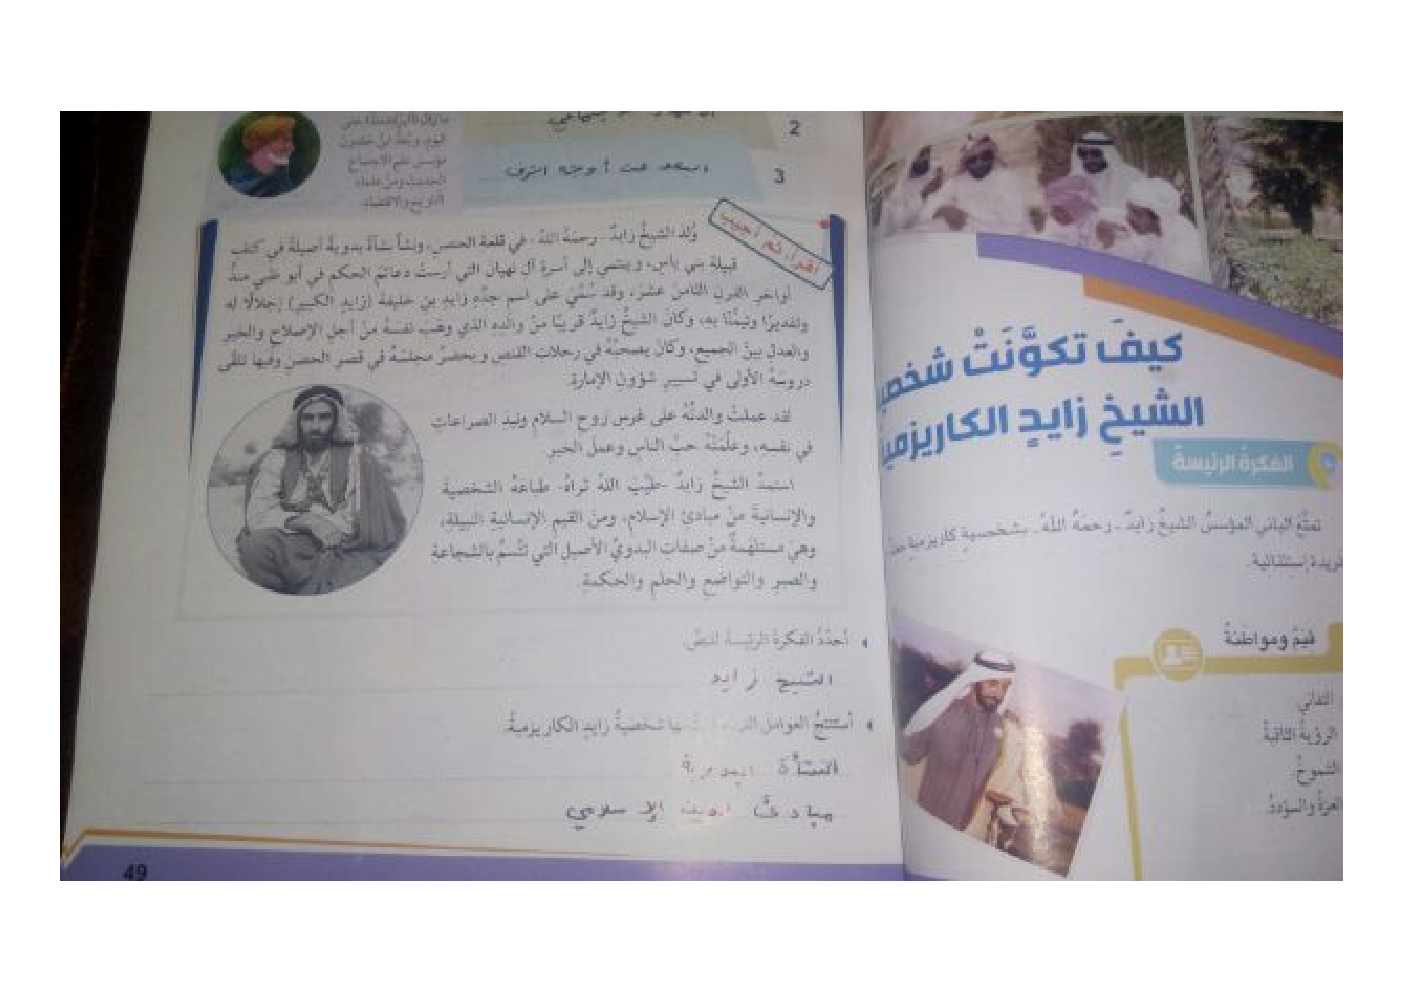 كيفَ تكوَّنَتْ
الشيخِ زايدٍ الكاريزمية
الفكرةُ الرئيسةُ
تمتَّعَ الباني المؤسسُ الشيخُ زايدٌ - رحمَهُ اللهُ - بشخصيةٍ كاريزميةٍ
فريدة إستثنائية.
قيَمٌ ومواطَنةٌ
التفاني.
الرؤيةُ الثاقبةُ.
الشموخُ.
العزةُ والسؤددُ.
2
3
أقرأ، ثم أجيب
وُلدَ الشيخُ زايدٌ - رحمَهُ اللهُ - في قلعة الحصنِ، ونشأ نشأةً بدويةً أصيلةً في كنفِ
قبيلة بني ياس، وينتمي إلى أسرةِ آل نهيان التي أرستْ دعائمَ الحكم في أبو ظبي منذُ
أواخرِ القرنِ الثامنَ عشرَ، وقد سُمِّيَ على اسمِ جدِّهِ زايدِ بنِ خليفةَ (زايدٍ الكبيرِ) إجلالًا له
وتقديرًا وتيمُّنًا به، وكانَ الشيخُ زايدٌ قريبًا منْ والده الذي وهبَ نفسهُ منْ أجلِ الإصلاح والخيرِ
والعدلِ بينَ الجميعِ، وكان يصحبُهُ في رحلات القنصِ ويحضرُ مجلسَهُ في قصرِ الحصنِ وفيها تلقَّى
دروسَهُ الأولى في تسييرِ شؤونِ الإمارةِ.
لقد عملتْ والدتُهُ على غرسِ روحِ السلامِ ونبذِ الصراعاتِ
في نفسه، وعلَّمَتْهُ حبَّ الناسِ وعملَ الخيرِ.
استمدَّ الشيخُ زايدٌ -طيَّبَ اللهُ ثراهُ- طباعَهُ الشخصيةَ
والإنسانيةَ منْ مبادئِ الإسلامِ، ومنَ القيمِ الإنسانيةِ النبيلةِ،
وهيَ مستلهَمةٌ منْ صفاتِ البدويِّ الأصيلِ التي تتَّسمُ بالشجاعةِ
والصبرِ والتواضعِ والحلمِ والحكمةِ.
أحدِّدُ الفكرةَ الرئيسةَ للنصِّ.
الشيخ زايد
أستنتجُ العوامل شخصيةُ زايدٍ الكاريزميةُ.
النشأة البدوية
مبادئ الدين الإسلامي
49